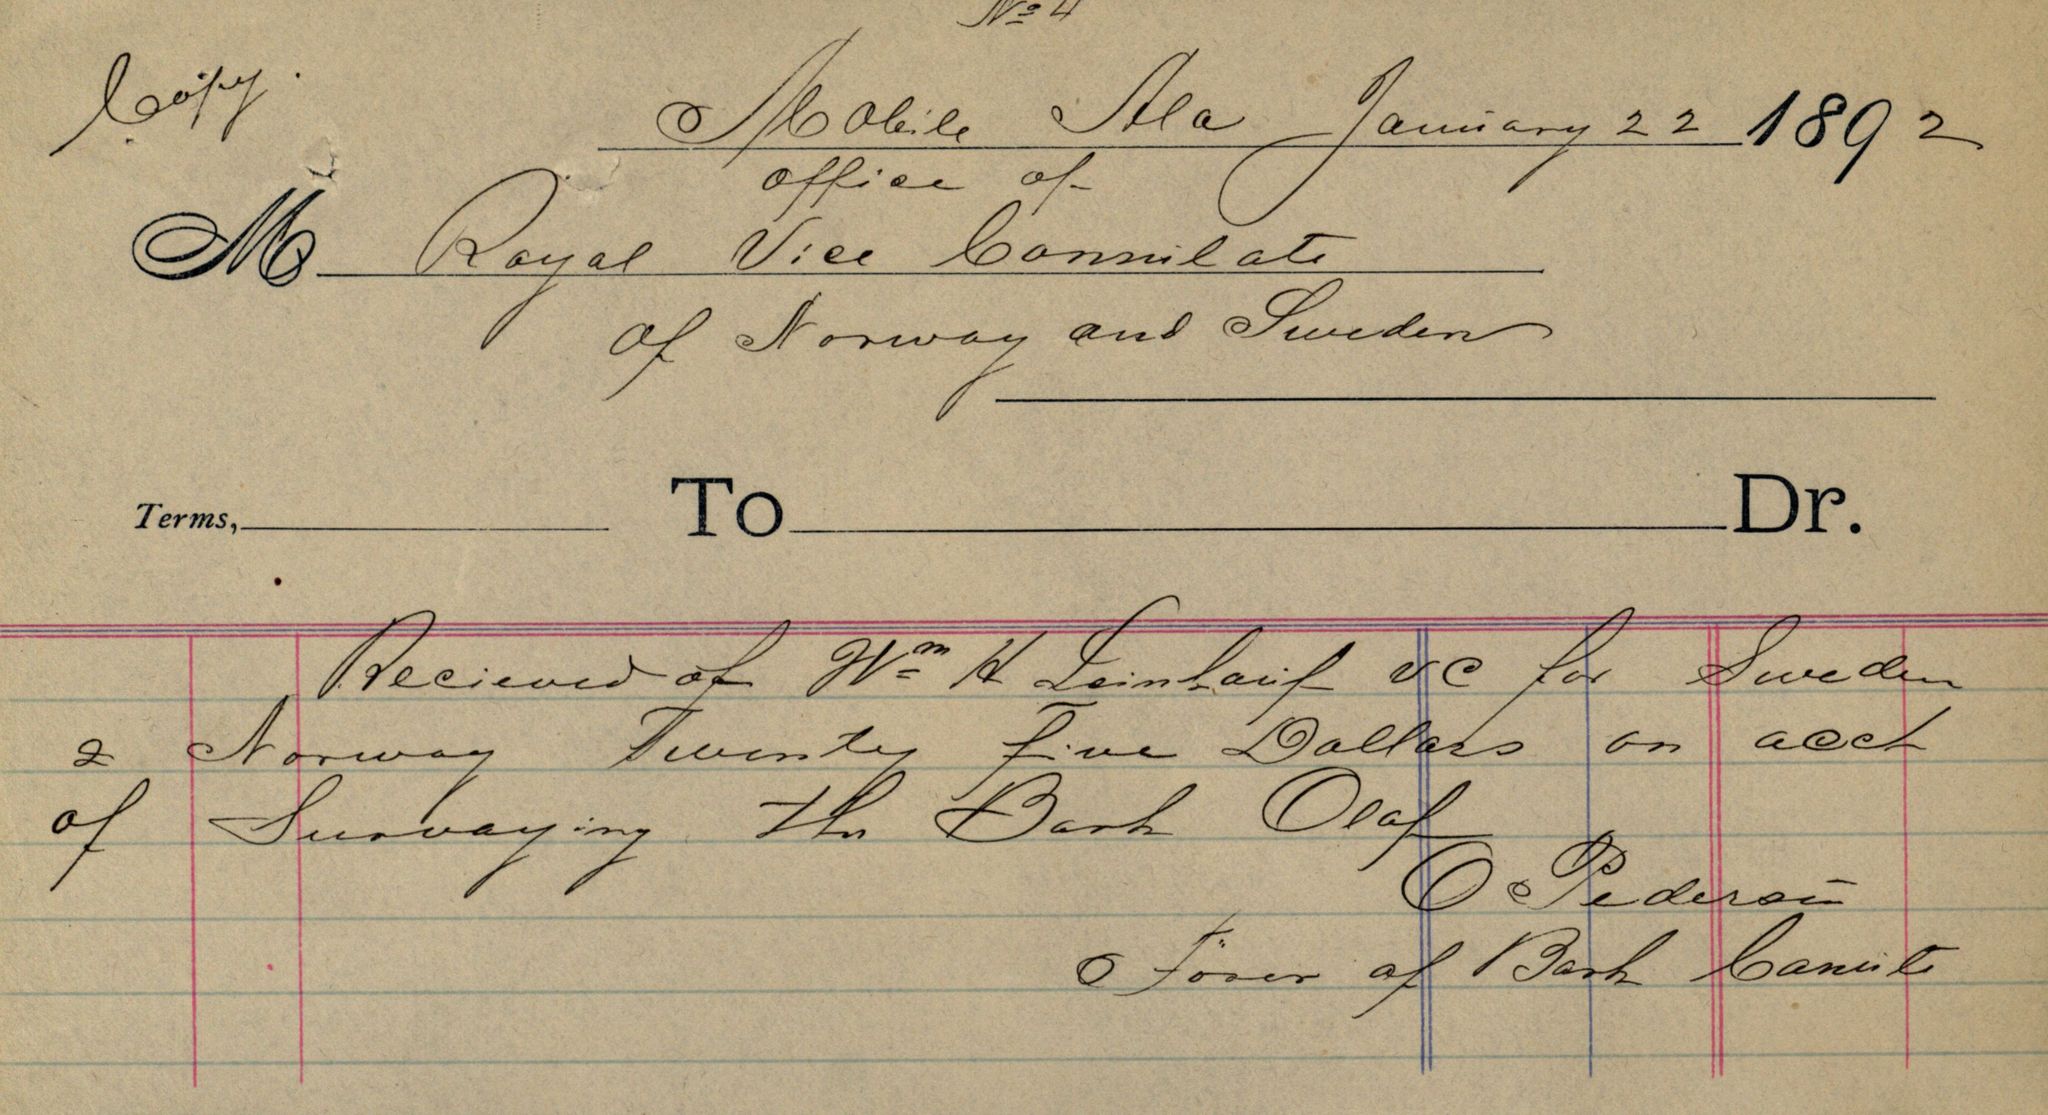 No 4
Copy.
Mobile Ala January 22 1892
office of
M Royal Vice Consulate
of Norway and Sweden
Terms, To Dr.
Recieved of Wm H Leinkauf VC for Sweden
& Norway Twenty Five Dollars on acct
of Survaying the Bark Olaf
O Pedersen
Förer of Bark Canute